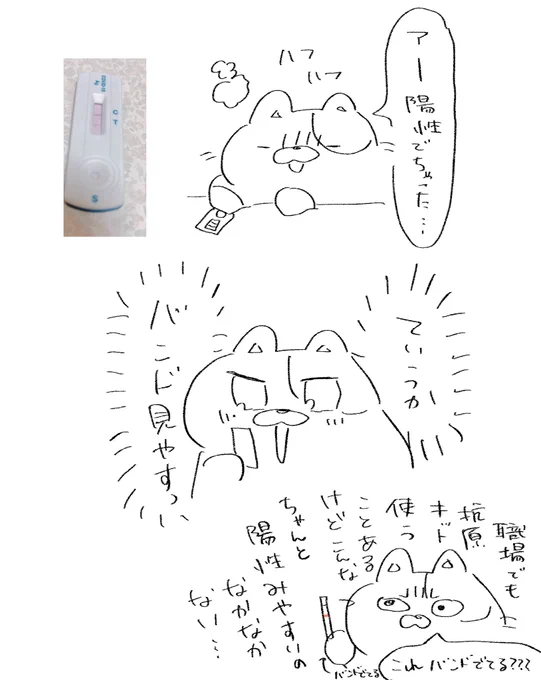 アー陽性でちゃった…
ハフ
ハフ
C
T
S
ていうか
バンド見やすっい
職場でも
抗原
キッド
使う
ことある
けどこんな
ちゃんと
陽性みやすいの
なかなか
ない…
これバンドでてる???
バンドでてる